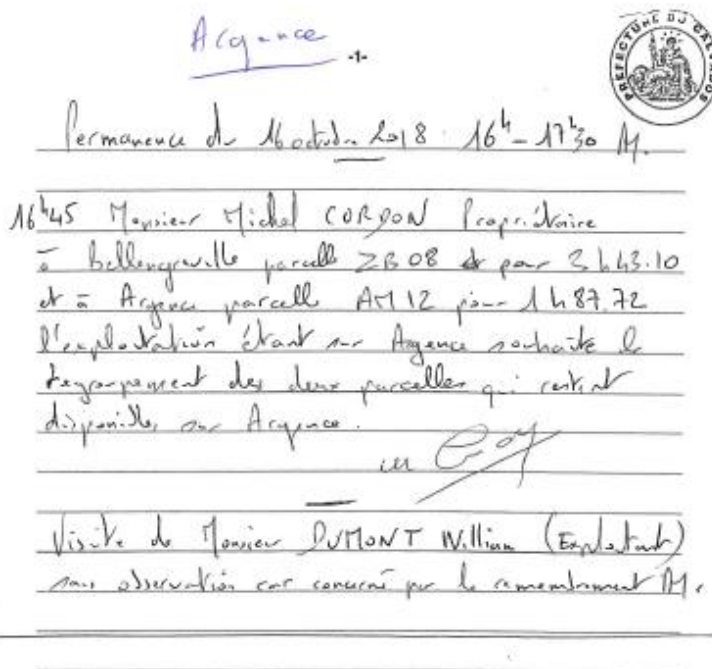 Argence
-1-
PREFECTURE DU CALVADOS
Permanence du 16 octobre 2018 16h - 17h30 M.
16h45 Monsieur Michel CORDON Propriétaire
à Bellengreville parcelle ZB 08 et pour 3h43.10
et à Argence parcelle AM 12 pour 1h87.72
l'exploitation étant sur Argence souhaite le
regroupement des deux parcelles qui restent
disponibles sur Argence.
Visite de Monsieur DUMONT William (Exploitant)
sans observation car concerné par le remembrement M.